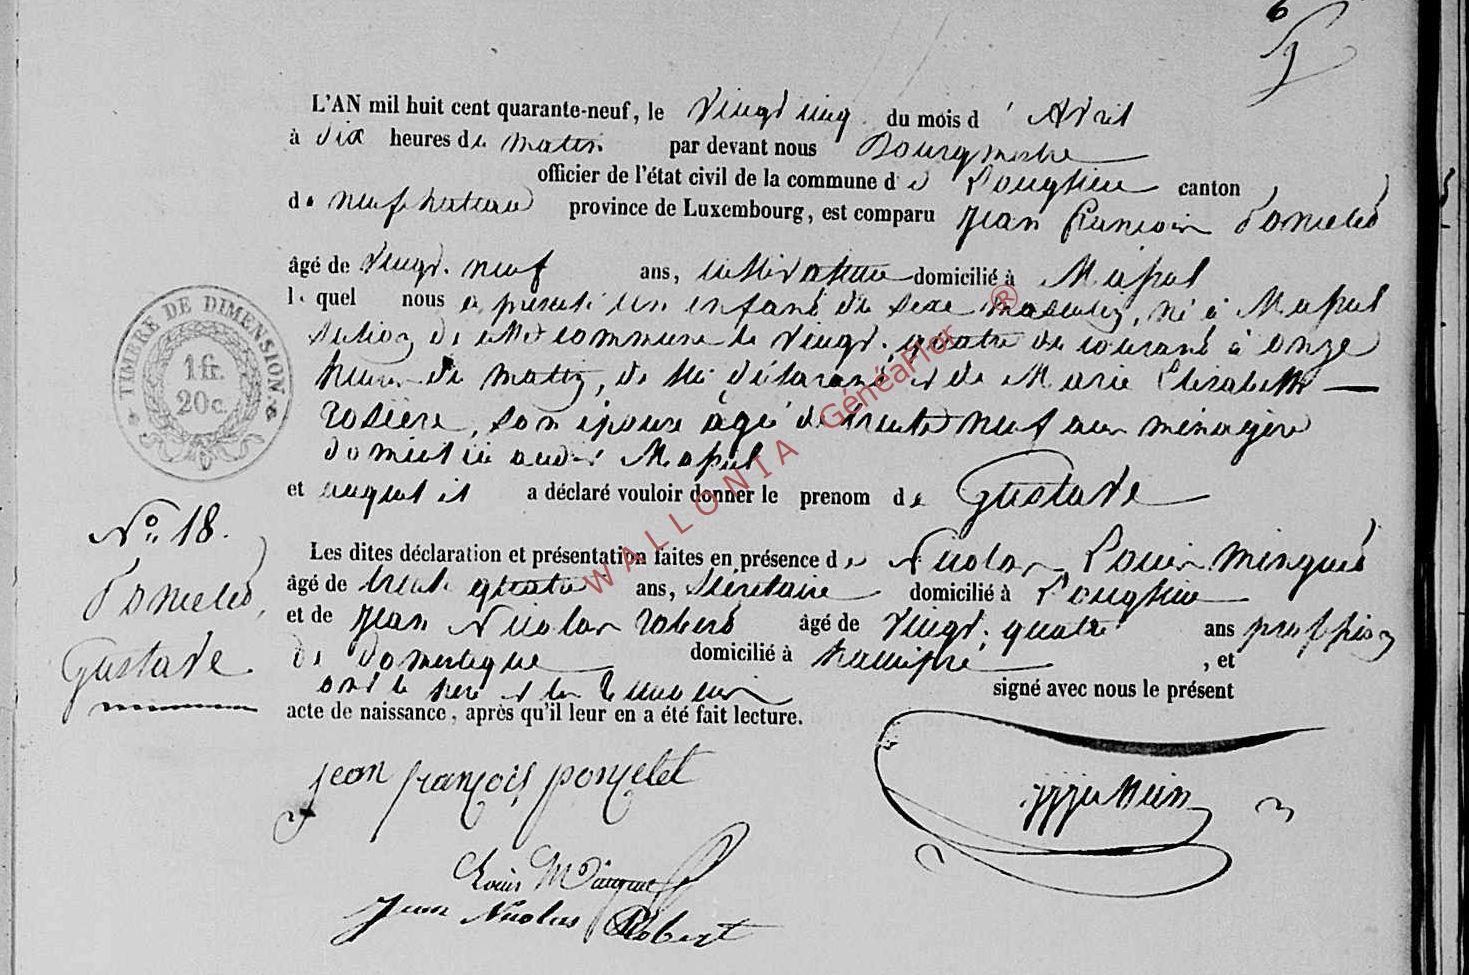 L'AN mil huit cent quarante-neuf, le vingt cinq du mois d'Avril
à dix heures du matin par devant nous Bourgmestre
officier de l'état civil de la commune de Longlier canton
de neufchateau province de Luxembourg, est comparu Jean François Poncelet
âgé de vingt-neuf ans, cultivateur domicilié à Massul
lequel nous a présenté un enfant du sexe masculin, né à Massul
section de cette commune le vingt-quatre du courant à onze
heures du matin, de lui déclarant et de Marie Elisabeth
rosière, son épouse âgée de trente neuf ans ménagère
domiciliée audit Massul
et auquel il a déclaré vouloir donner le prenom de Gustave
Les dites déclaration et présentation faites en présence de Nicolas Louis Minguet
âgé de trente quatre ans, Sécrétaire domicilié à Longlier
et de Jean Nicolas robert âgé de vingt-quatre ans profession
de domestique domicilié à hamipré, et
ont le père et les témoins signé avec nous le présent
acte de naissance, après qu'il leur en a été fait lecture.
TIMBRE DE DIMENSION.
1 fr.
20 c.
N° 18.
Poncelet,
Gustave
jean françois poncelet
Louis Minguet
Jean Nicolas Robert
WALLONIA GénéaFlor ®